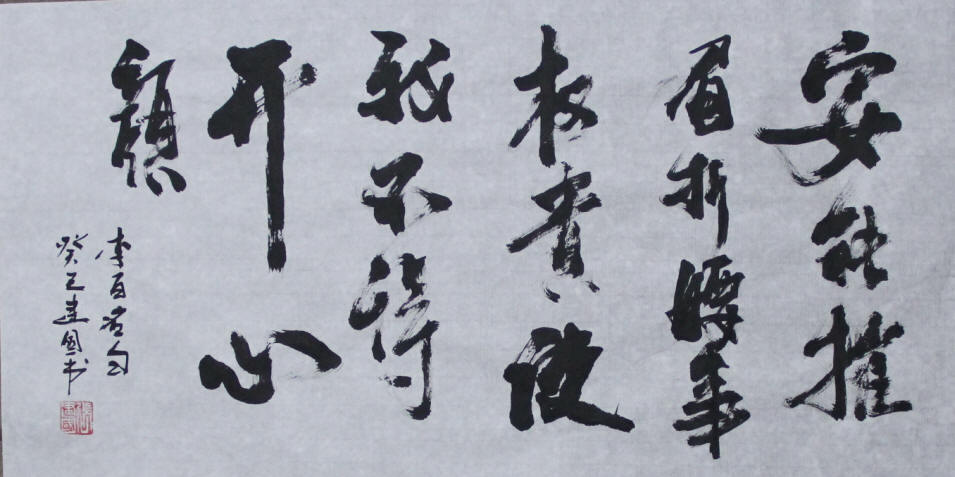 安能摧
眉折腰事
权贵使
我不得
开心
颜
李白诗句
癸巳建国书